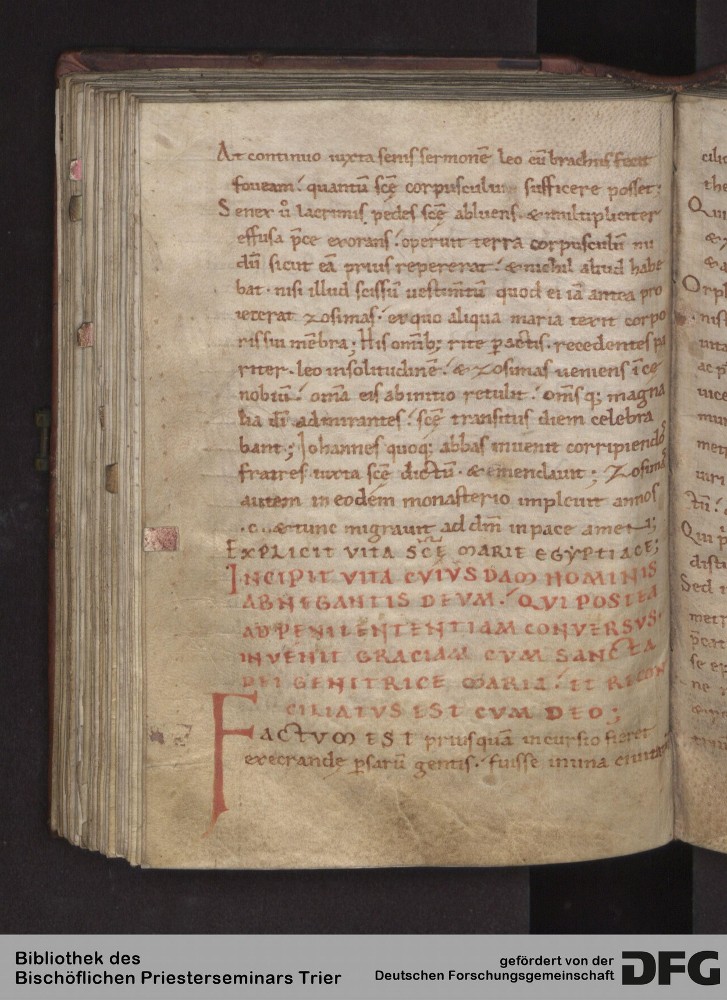 At continuo iuxta senis sermonē leo cū brachiis fecit
foveam. quantū scē corpusculum sufficere posset;
Senex ů lacrimis pedes scē abluens. & multipliciter
effusa p̄ce exorans. operuit terra corpusculū nu
dū sicut eā prius repererat. & nichil aliud habe
bat. nisi illud scissū uestimtū quod ei iā antea pro
iecerat zosimas. ex quo aliqua maria texit corpo
ris sui mēbra; His omib; rite pactis. recedentes pa
riter. leo in solitudinē. & zosimas ueniens ī ce
nobiū. omā eis ab initio retulit. omsq; magna
lia dī admirantes. scē transitus diem celebra
bant; Iohannes quoq; abbas inuenit corripiendos
fratres iuxta scē dictū. & emendauit; Zosimas
autem in eodem monasterio impleuit annos
.c. & tunc migrauit ad dm̄ in pace amen;
EXPLICIT VITA SCĒ MARIE EGYPTIACE;
INCIPIT VITA CVIVSDAM HOMINIS
ABNEGANTIS DEVM. QVI POSTEA
AD PENITENTENTIAM CONVERSVS.
INVENIT GRACIAM CVM SANCTA
DEI GENITRICE MARIA. ET RECON
CILIATVS EST CVM DEO;
FACTVM EST priusquā incursio fieret
execrande psarū gentis. fuisse in una ciuitate
Bibliothek des
Bischöflichen Priesterseminars Trier
gefördert von der
Deutschen Forschungsgemeinschaft
DFG